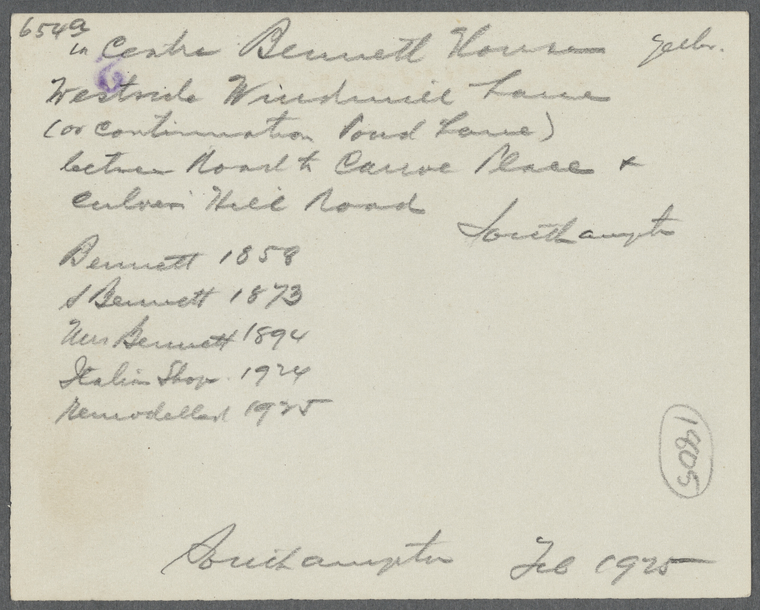 654a
in Centre Bennett House
Westside Windmill Lane
(or continuation Pond Lane)
between Road to Canoe Place &
Culvers Hill Road
Southampton
Bennett 1858
S Bennett 1873
Mrs Bennett 1894
Italian Shop 1924
Remodelled 1925
1805
Southampton Feb 1925